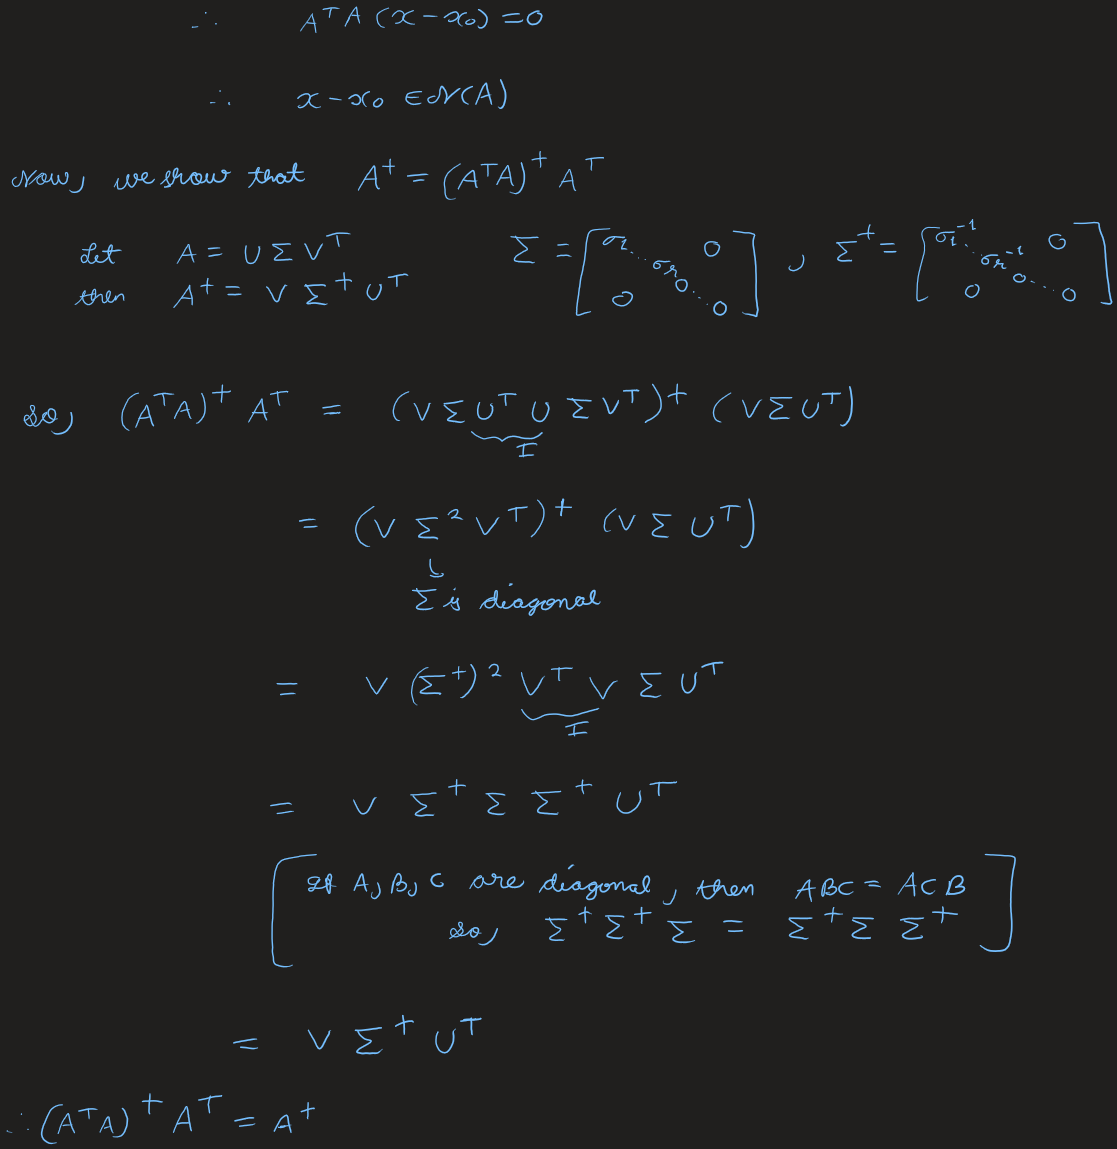 ∴ AᵀA (x − x₀) = 0
∴ x − x₀ ∈ N(A)
Now, we show that A⁺ = (AᵀA)⁺ Aᵀ
Let A = U Σ Vᵀ Σ = [σ₁ ... σᵣ 0 ... 0 0 0] , Σ⁺ = [σ₁⁻¹ ... σᵣ⁻¹ 0 ... 0 0 0]
then A⁺ = V Σ⁺ Uᵀ
So, (AᵀA)⁺ Aᵀ = (V Σ Uᵀ U Σ Vᵀ)⁺ (V Σ Uᵀ)
I
= (V Σ² Vᵀ)⁺ (V Σ Uᵀ)
Σ is diagonal
= V (Σ⁺)² Vᵀ V Σ Uᵀ
I
= V Σ⁺ Σ Σ⁺ Uᵀ
[ If A, B, C are diagonal, then ABC = ACB
so, Σ⁺ Σ⁺ Σ = Σ⁺ Σ Σ⁺ ]
= V Σ⁺ Uᵀ
∴ (AᵀA)⁺ Aᵀ = A⁺